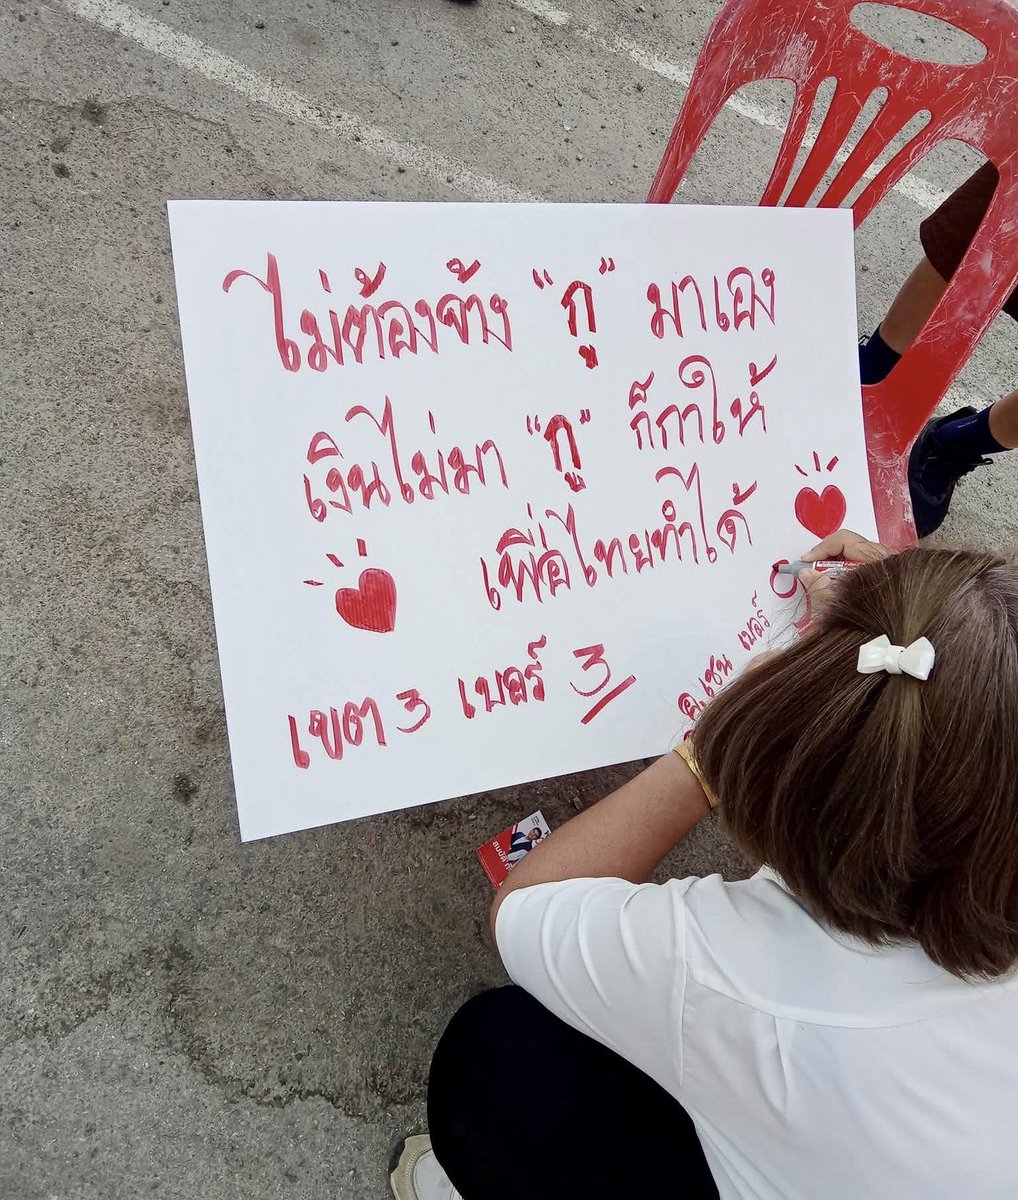 ไม่ต้องจ้าง "กู" มาเอง
เงินไม่มา "กู" ก็กาให้
เพื่อไทยทำได้
เขต 3 เบอร์ 3
เบอร์